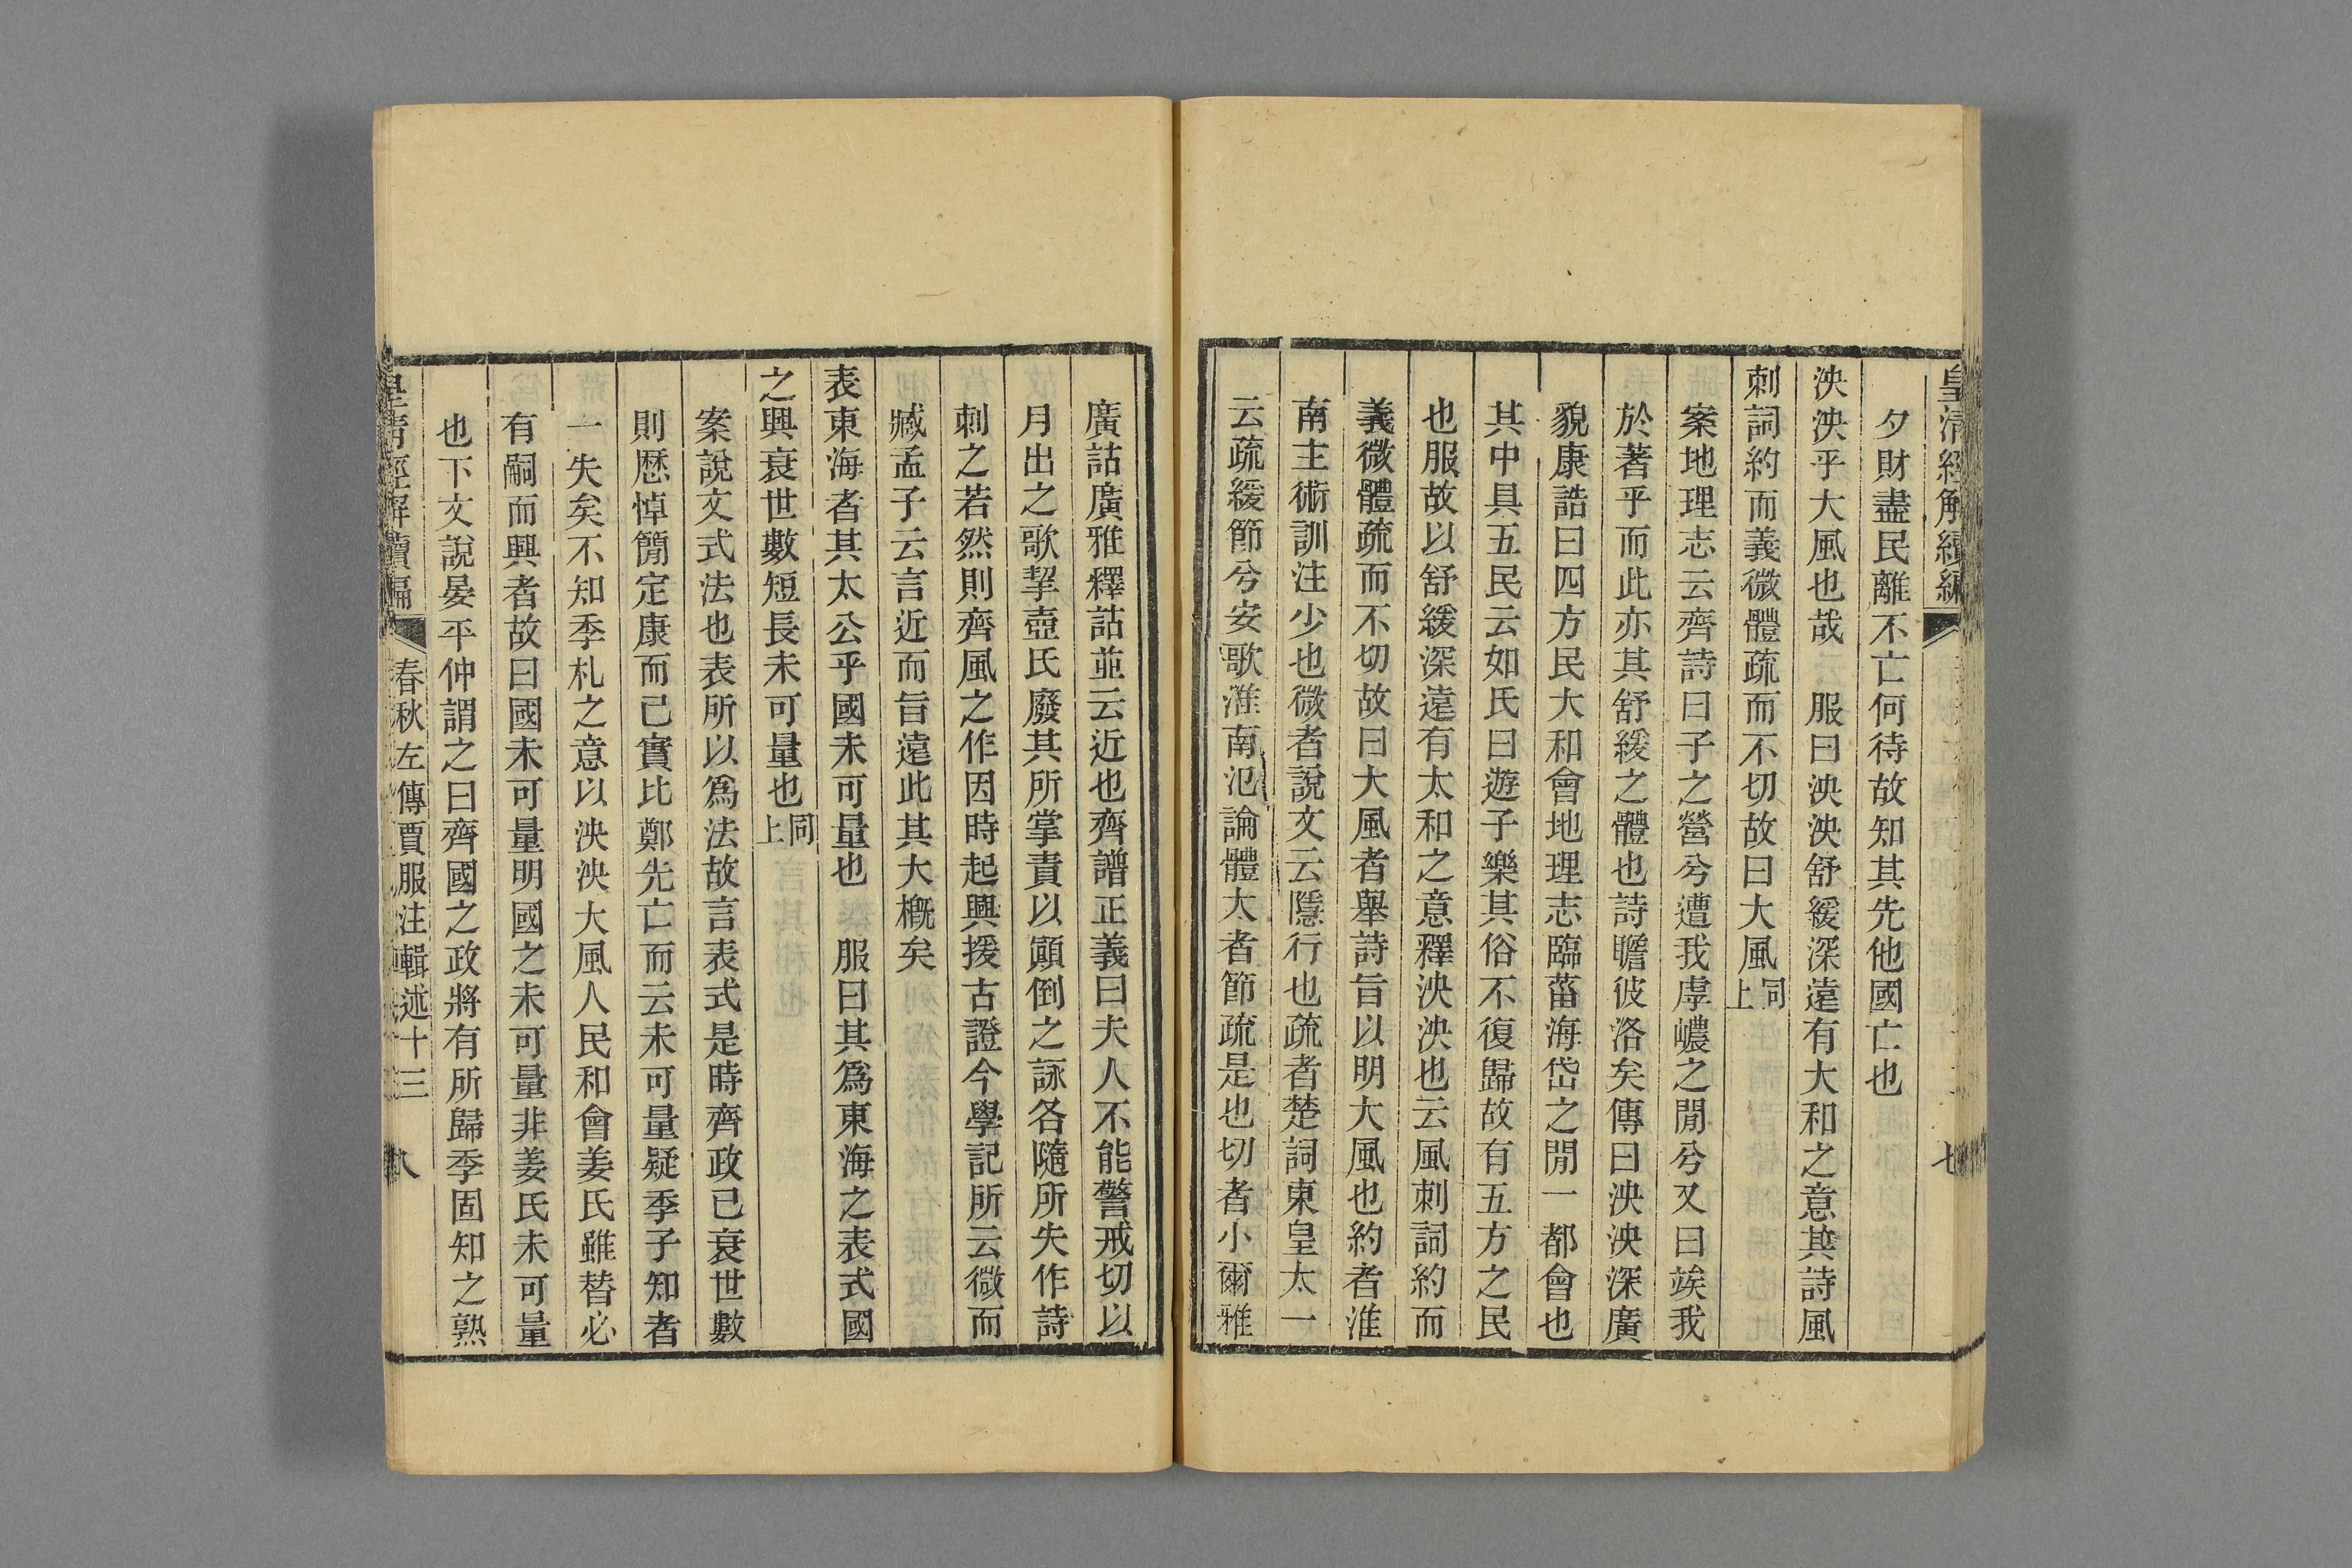 皇清經解續編
七
夕財盡民離不亡何待故知其先他國亡也
泱泱乎大風也哉　服曰泱泱舒緩深遠有大和之意其詩風
刺詞約而義微體疏而不切故曰大風同上
案地理志云齊詩曰子之營兮遭我虖嶩之閒兮又曰竢我
於著乎而此亦其舒緩之體也詩瞻彼洛矣傳曰泱泱深廣
貌康誥曰四方民大和會地理志臨菑海岱之閒一都會也
其中具五民云如氏曰遊子樂其俗不復歸故有五方之民
也服故以舒緩深遠有太和之意釋泱泱也云風刺詞約而
義微體疏而不切故曰大風者舉詩旨以明大風也約者淮
南主術訓注少也微者說文云隱行也疏者楚詞東皇太一
云疏緩節兮安歌淮南氾論體大者節疏是也切者小爾雅
廣詁廣雅釋詁並云近也齊譜正義曰夫人不能警戒切以
月出之歌挈壺氏廢其所掌責以顚倒之詠各隨所失作詩
刺之若然則齊風之作因時起興援古證今學記所云微而
臧孟子云言近而旨遠此其大槪矣
表東海者其太公乎國未可量也　服曰其爲東海之表式國
之興衰世數短長未可量也同上
案說文式法也表所以爲法故言表式是時齊政已衰世數
則歷悼簡定康而已實比鄭先亡而云未可量疑季子知者
一失矣不知季札之意以泱泱大風人民和會姜氏雖替必
有嗣而興者故曰國未可量明國之未可量非姜氏未可量
也下文說晏平仲謂之曰齊國之政將有所歸季固知之熟
皇清經解續編
春秋左傳賈服注輯述十三
八